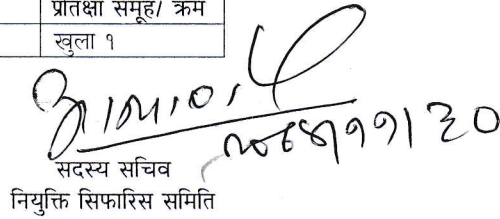 प्रतिक्षा समूह/ क्रम
खुला १
सदस्य सचिव
नियुक्ति सिफारिस समिति